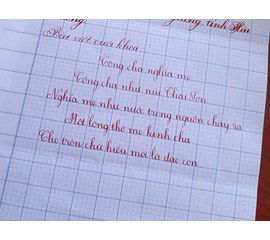 giang, tỉnh Hải
Bài viết của khoa
Công cha nghĩa mẹ
Công cha như núi Thái Sơn
Nghĩa mẹ như nước trong nguồn chảy ra
Một lòng thờ mẹ kính cha
Cho tròn chữ hiếu mới là đạo con